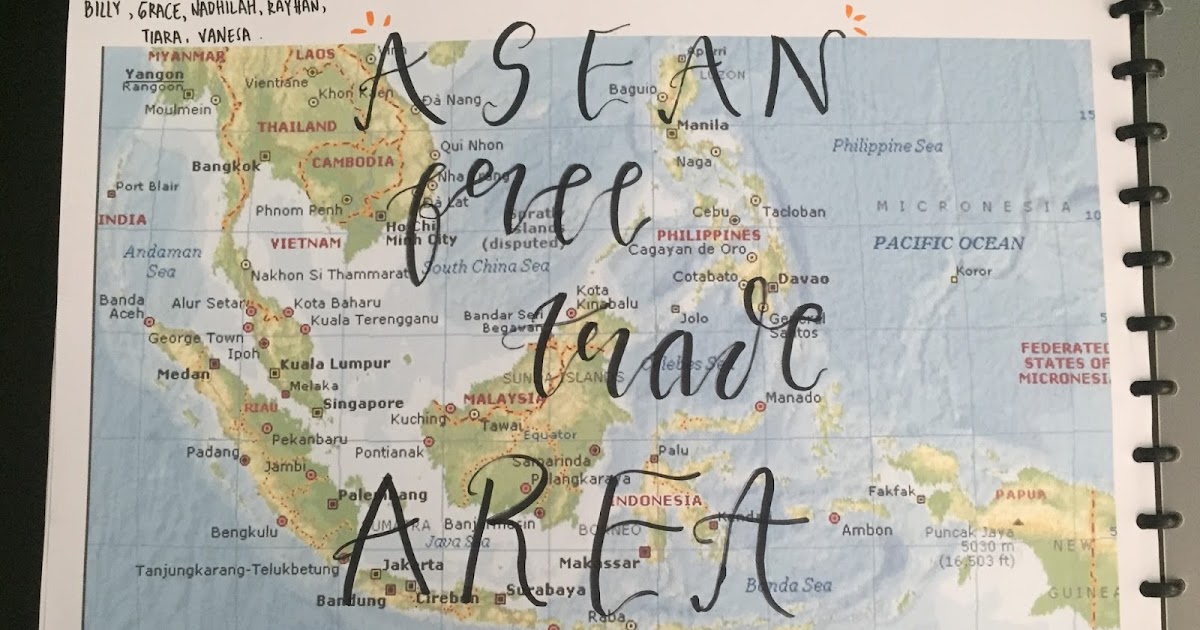 BILLY, GRACE, NADHILAH, RAYHAN,
TIARA, VANESA.
ASEAN
free
trade
AREA
MYANMAR
LAOS
Yangon
Rangoon
Vientiane
Khon Kaen
Moulmein
Đà Nang
Baguio
Aparri
LUZON
THAILAND
Manila
15
Bangkok
CAMBODIA
Qui Nhon
Naga
Philippine Sea
Port Blair
Nha Trang
Đà Lat
INDIA
Phnom Penh
Ho Chi
Minh City
Spratly
Islands
(disputed)
Cebu
Tacloban
MICRONESIA
10
Andaman
Sea
VIETNAM
PHILIPPINES
Cagayan de Oro
PACIFIC OCEAN
Nakhon Si Thammarat
South China Sea
Cotabato
Davao
Koror
Banda
Aceh
Alur Setar
Kota Baharu
Kuala Terengganu
Kota
Kinabalu
Bandar Seri
Begawan
Jolo
General
Santos
5
George Town
Ipoh
Kuala Lumpur
Medan
Melaka
Celebes Sea
SUNDA ISLANDS
FEDERATED
STATES OF
MICRONESIA
RIAU
Singapore
MALAYSIA
Manado
Kuching
Tawai
Pekanbaru
Equator
Padang
Pontianak
Jambi
Samarinda
Palu
Palangkaraya
Palembang
INDONESIA
Fakfak
PAPUA
Bengkulu
SUMATRA
Banjarmasin
BORNEO
Kendari
Ambon
Java Sea
Puncak Jaya
5030 m
(16,503 ft)
NEW
GUINEA
5
Tanjungkarang-Telukbetung
Jakarta
Makassar
Bandung
Cirebon
Surabaya
Banda Sea
Raba